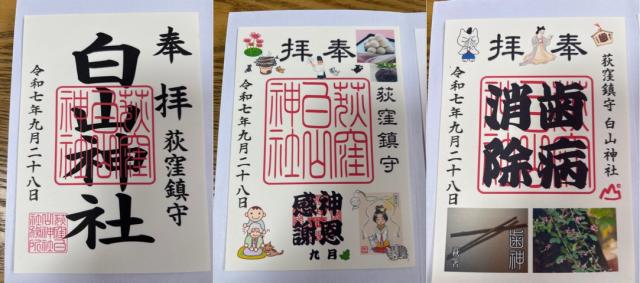 奉拝
荻窪鎮守
白山神社
令和七年九月二十八日
荻窪白山神社
奉拝
荻窪鎮守
荻窪白山神社
神恩感謝
九月
令和七年九月二十八日
奉拝
荻窪鎮守 白山神社
荻窪白山神社
歯病
消除
令和七年九月二十八日
歯神
萩箸